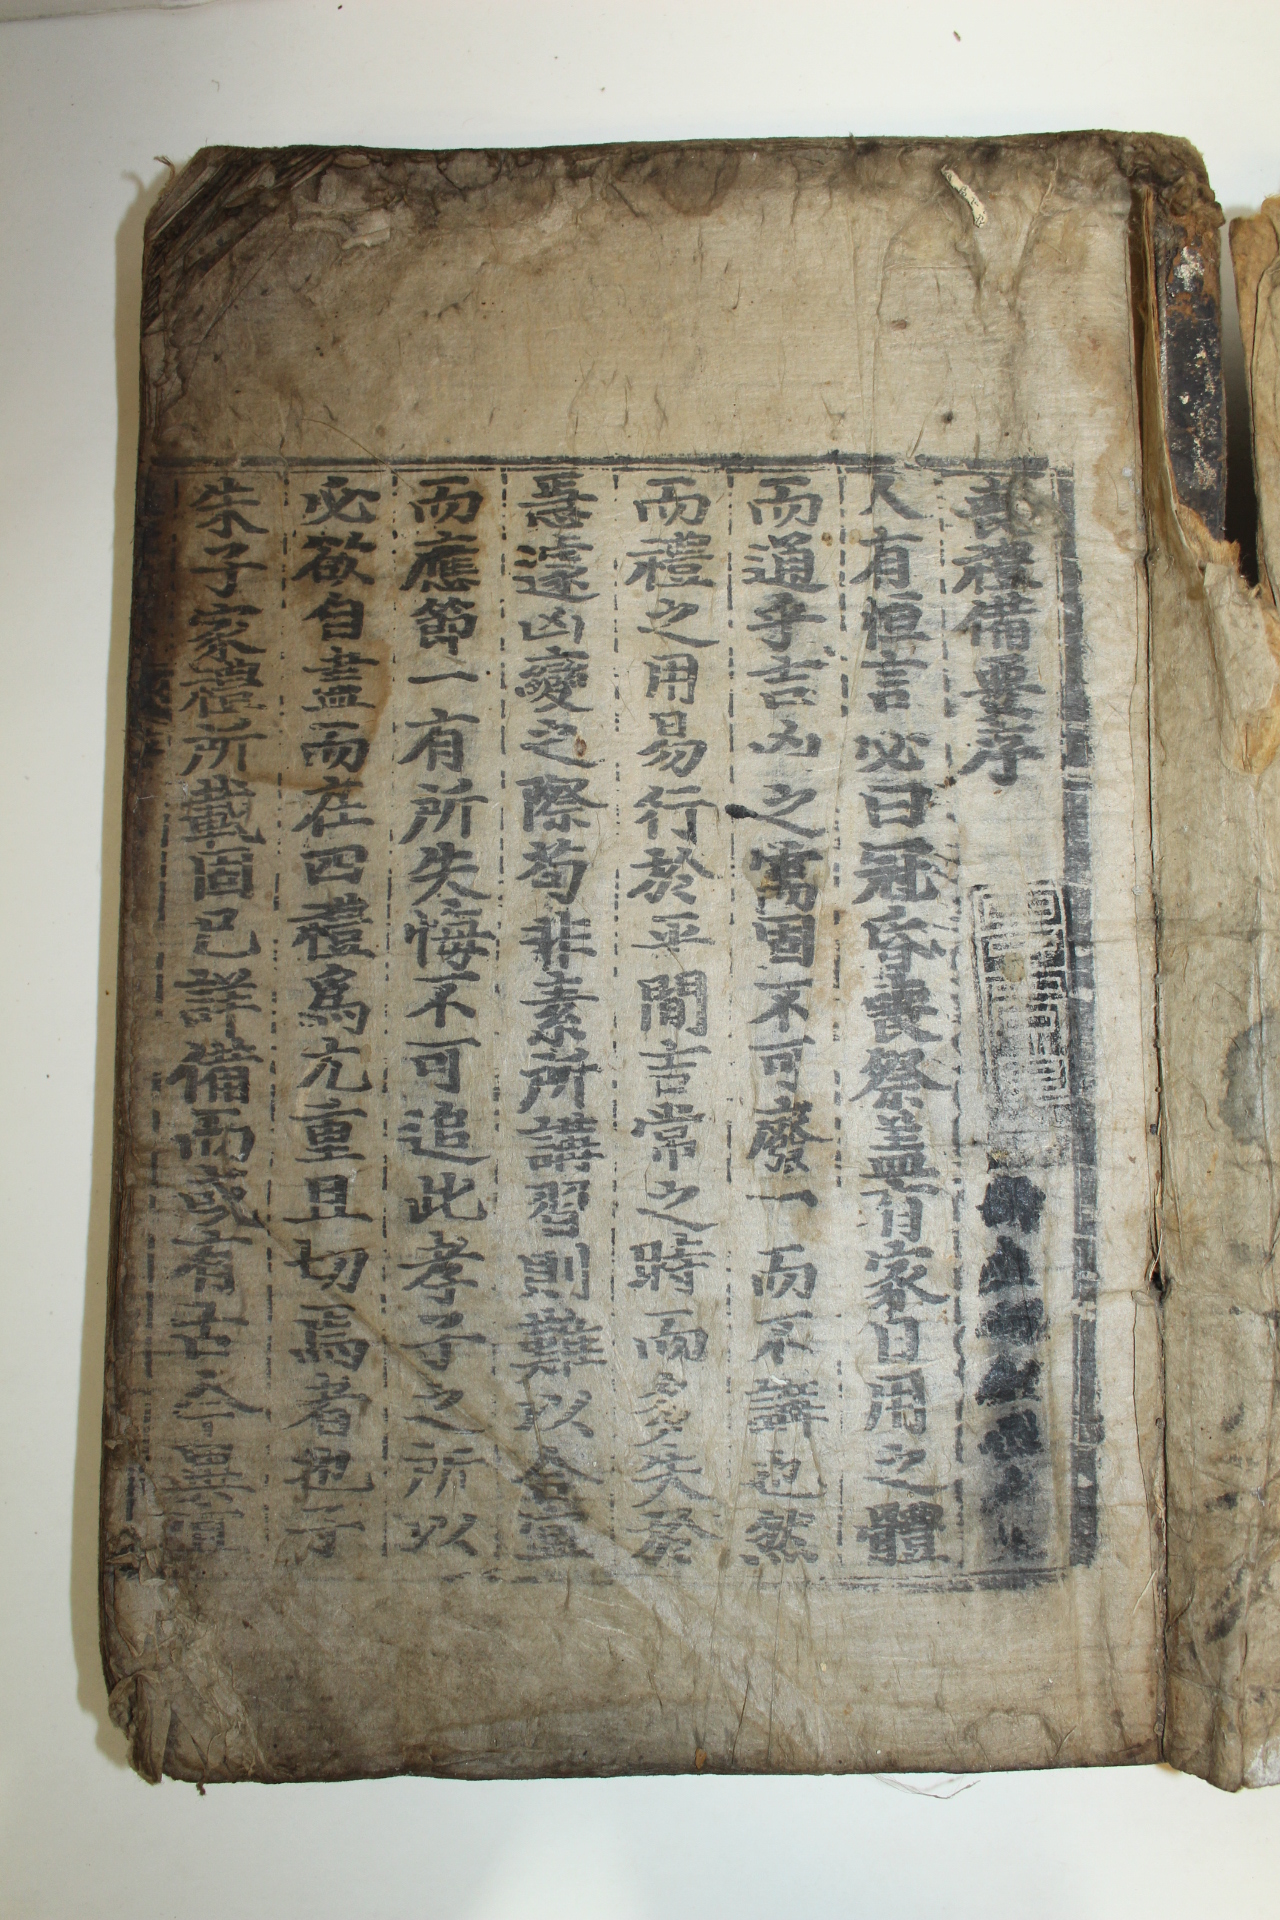 喪禮備要序
人有恒言必曰冠昏喪祭盖無有家日用之體
而通乎吉凶之寓因不可廢一而不講也然
而禮之用易行於平閒吉常之時而多失於
遽凶變之際苟非素所講習則難以合宜
而應節一有所失悔不可追此孝子之所以
必欲自盡而在四禮爲尤重且切焉者也子
朱子家禮所載固已詳備而或有古今異